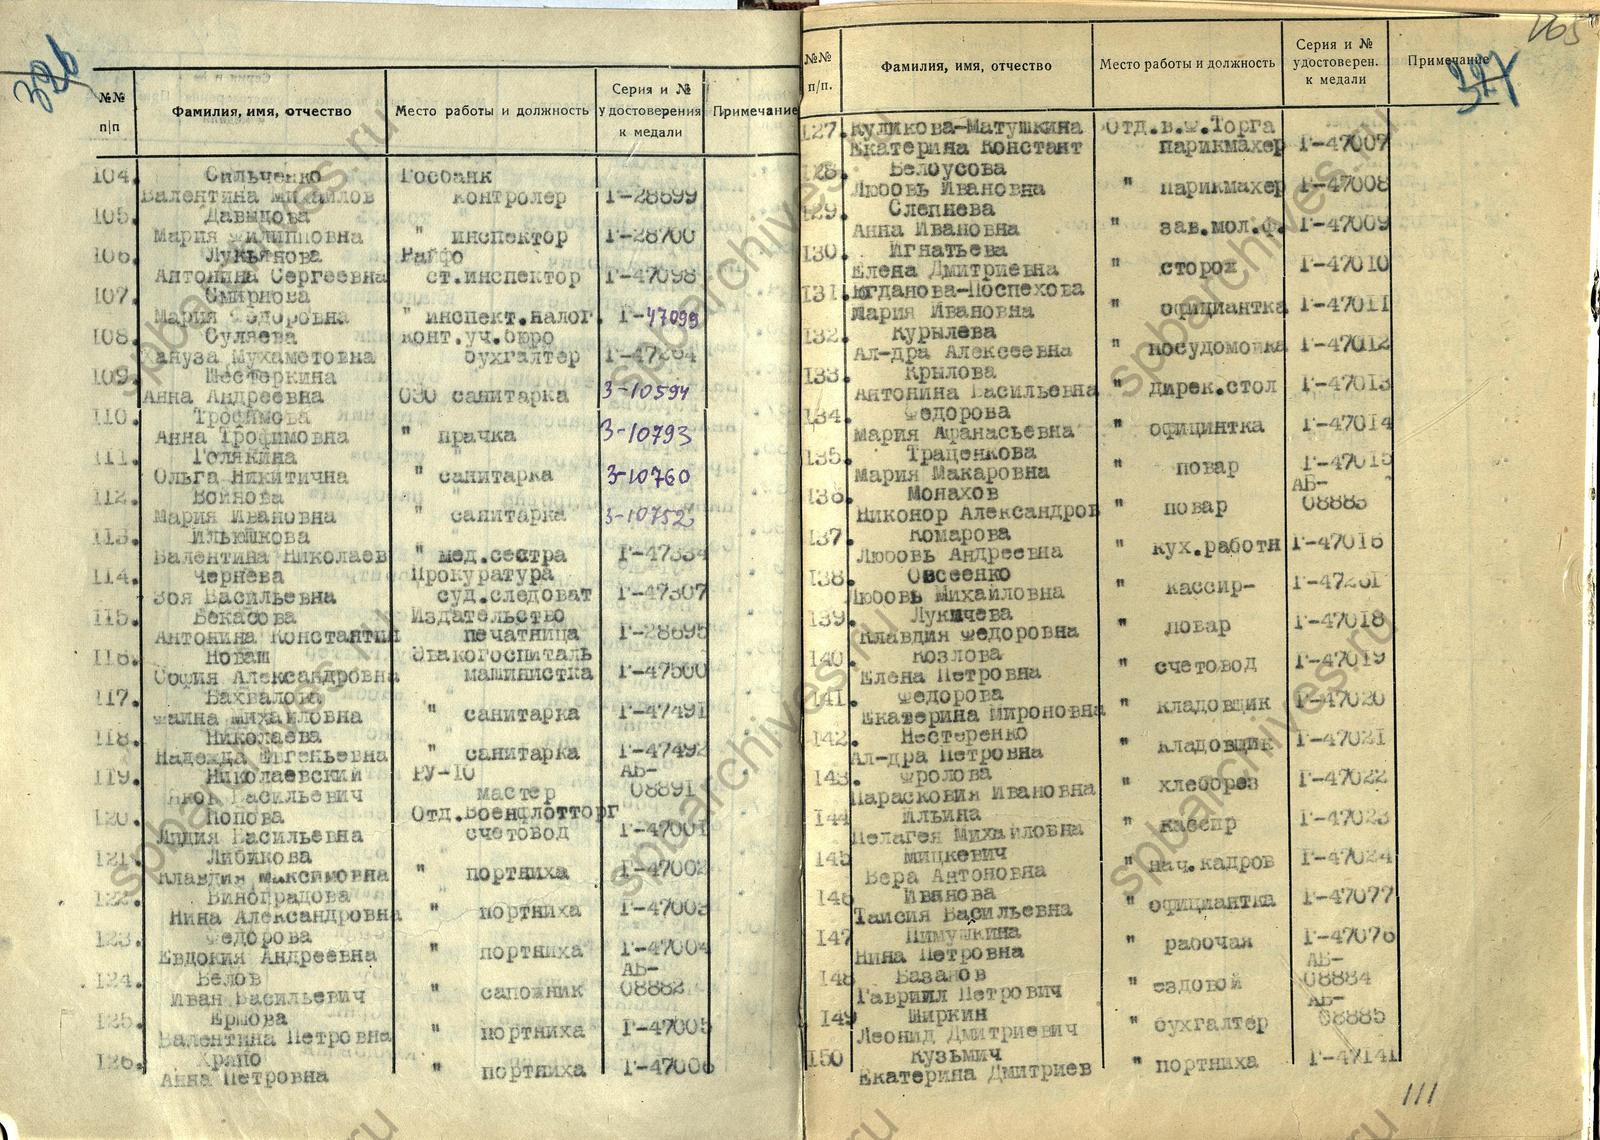 326
№№ п/п Фамилия, имя, отчество Место работы и должность Серия и № удостоверения к медали Примечание
104. Сильченко Госбанк
Валентина Михайлов контролер Г-28699
105. Давыдова
Мария Филипповна " инспектор Г-28700
106. Лукьянова Райфо
Антонина Сергеевна ст.инспектор Г-47098
107. Смирнова
Мария Федоровна " инспект.налог. Г-47099
108. Суляева Конт.уч.бюро
Мухаметовна бухгалтер Г-47264
109. Шестеркина
Анна Андреевна ОЗО санитарка З-10594
110. Трофимова
Анна Трофимовна " прачка З-10793
111. Голякина
Ольга Никитична " санитарка З-10760
112. Войнова
Мария Ивановна " санитарка З-10752
113. Ильюшкова
Валентина Николаев " мед.сестра Г-47334
114. Чернева Прокуратура
Зоя Васильевна суд.следоват Г-47307
115. Бекасова Издательство
Антонина Константин печатница Г-28695
116. Новаш Эвакогоспиталь
София Александровна машинистка Г-47500
117. Бахвалова
Фаина Михайловна " санитарка Г-47491
118. Николаева
Надежда Евгеньевна " санитарка Г-47492
119. Николаевский РУ-10 АБ-
Яков Васильевич мастер 08891
120. Попова Отд.Военфлотторг
Лидия Васильевна счетовод Г-47001
121. Либикова
Клавдия Максимовна " портниха Г-47002
122. Виноградова
Нина Александровна " портниха Г-47003
123. Федорова
Евдокия Андреевна " портниха Г-47004
124. Белов АБ-
Иван Васильевич " сапожник 08882
125. Ершова
Валентина Петровна " портниха Г-47005
126. Храпо
Анна Петровна " портниха Г-47006
327
№№ п/п. Фамилия, имя, отчество Место работы и должность Серия и № удостоверен. к медали Примечание
127. Куликова-Матушкина Отд.в.ф.Торга
Екатерина Констант парикмахер Г-47007
128. Белоусова
Любовь Ивановна " парикмахер Г-47008
129. Слепнева
Анна Ивановна " зав.мол.ф. Г-47009
130. Игнатьева
Елена Дмитриевна " сторож Г-47010
131. Югданова-Поспехова
Мария Ивановна " официантка Г-47011
132. Курылева
Ал-дра Алексеевна " посудомойка Г-47012
133. Крылова
Антонина Васильевна " дирек.стол Г-47013
134. Федорова
Мария Афанасьевна " официнтка Г-47014
135. Траценкова
Мария Макаровна " повар Г-47015
136. Монахов АБ-
Никонор Александров " повар 08883
137. Комарова
Любовь Андреевна " кух.работн Г-47016
138. Овсеенко
Любовь Михайловна " кассир- Г-47261
139. Лукичева
Клавдия Федоровна " повар Г-47018
140. Козлова
Елена Петровна " счетовод Г-47019
141. Федорова
Екатерина Мироновна " кладовщик Г-47020
142. Нестеренко
Ал-дра Петровна " кладовщик Г-47021
143. Фролова
Парасковия Ивановна " хлеборез Г-47022
144 Ильина
Пелагея Михайловна " кассир Г-47023
145 Мицкевич
Вера Антоновна " нач.кадров Г-47024
146 Иванова
Таисия Васильевна " официантка Г-47077
147 Пимушкина
Нина Петровна " рабочая Г-47076
148 Базанов АБ-
Гавриил Петрович " ездовой 08884
149 Ширкин АБ-
Леонид Дмитриевич " бухгалтер 08885
150 Кузьмич
Екатерина Дмитриев " портниха Г-47141
111
spbarchives.ru